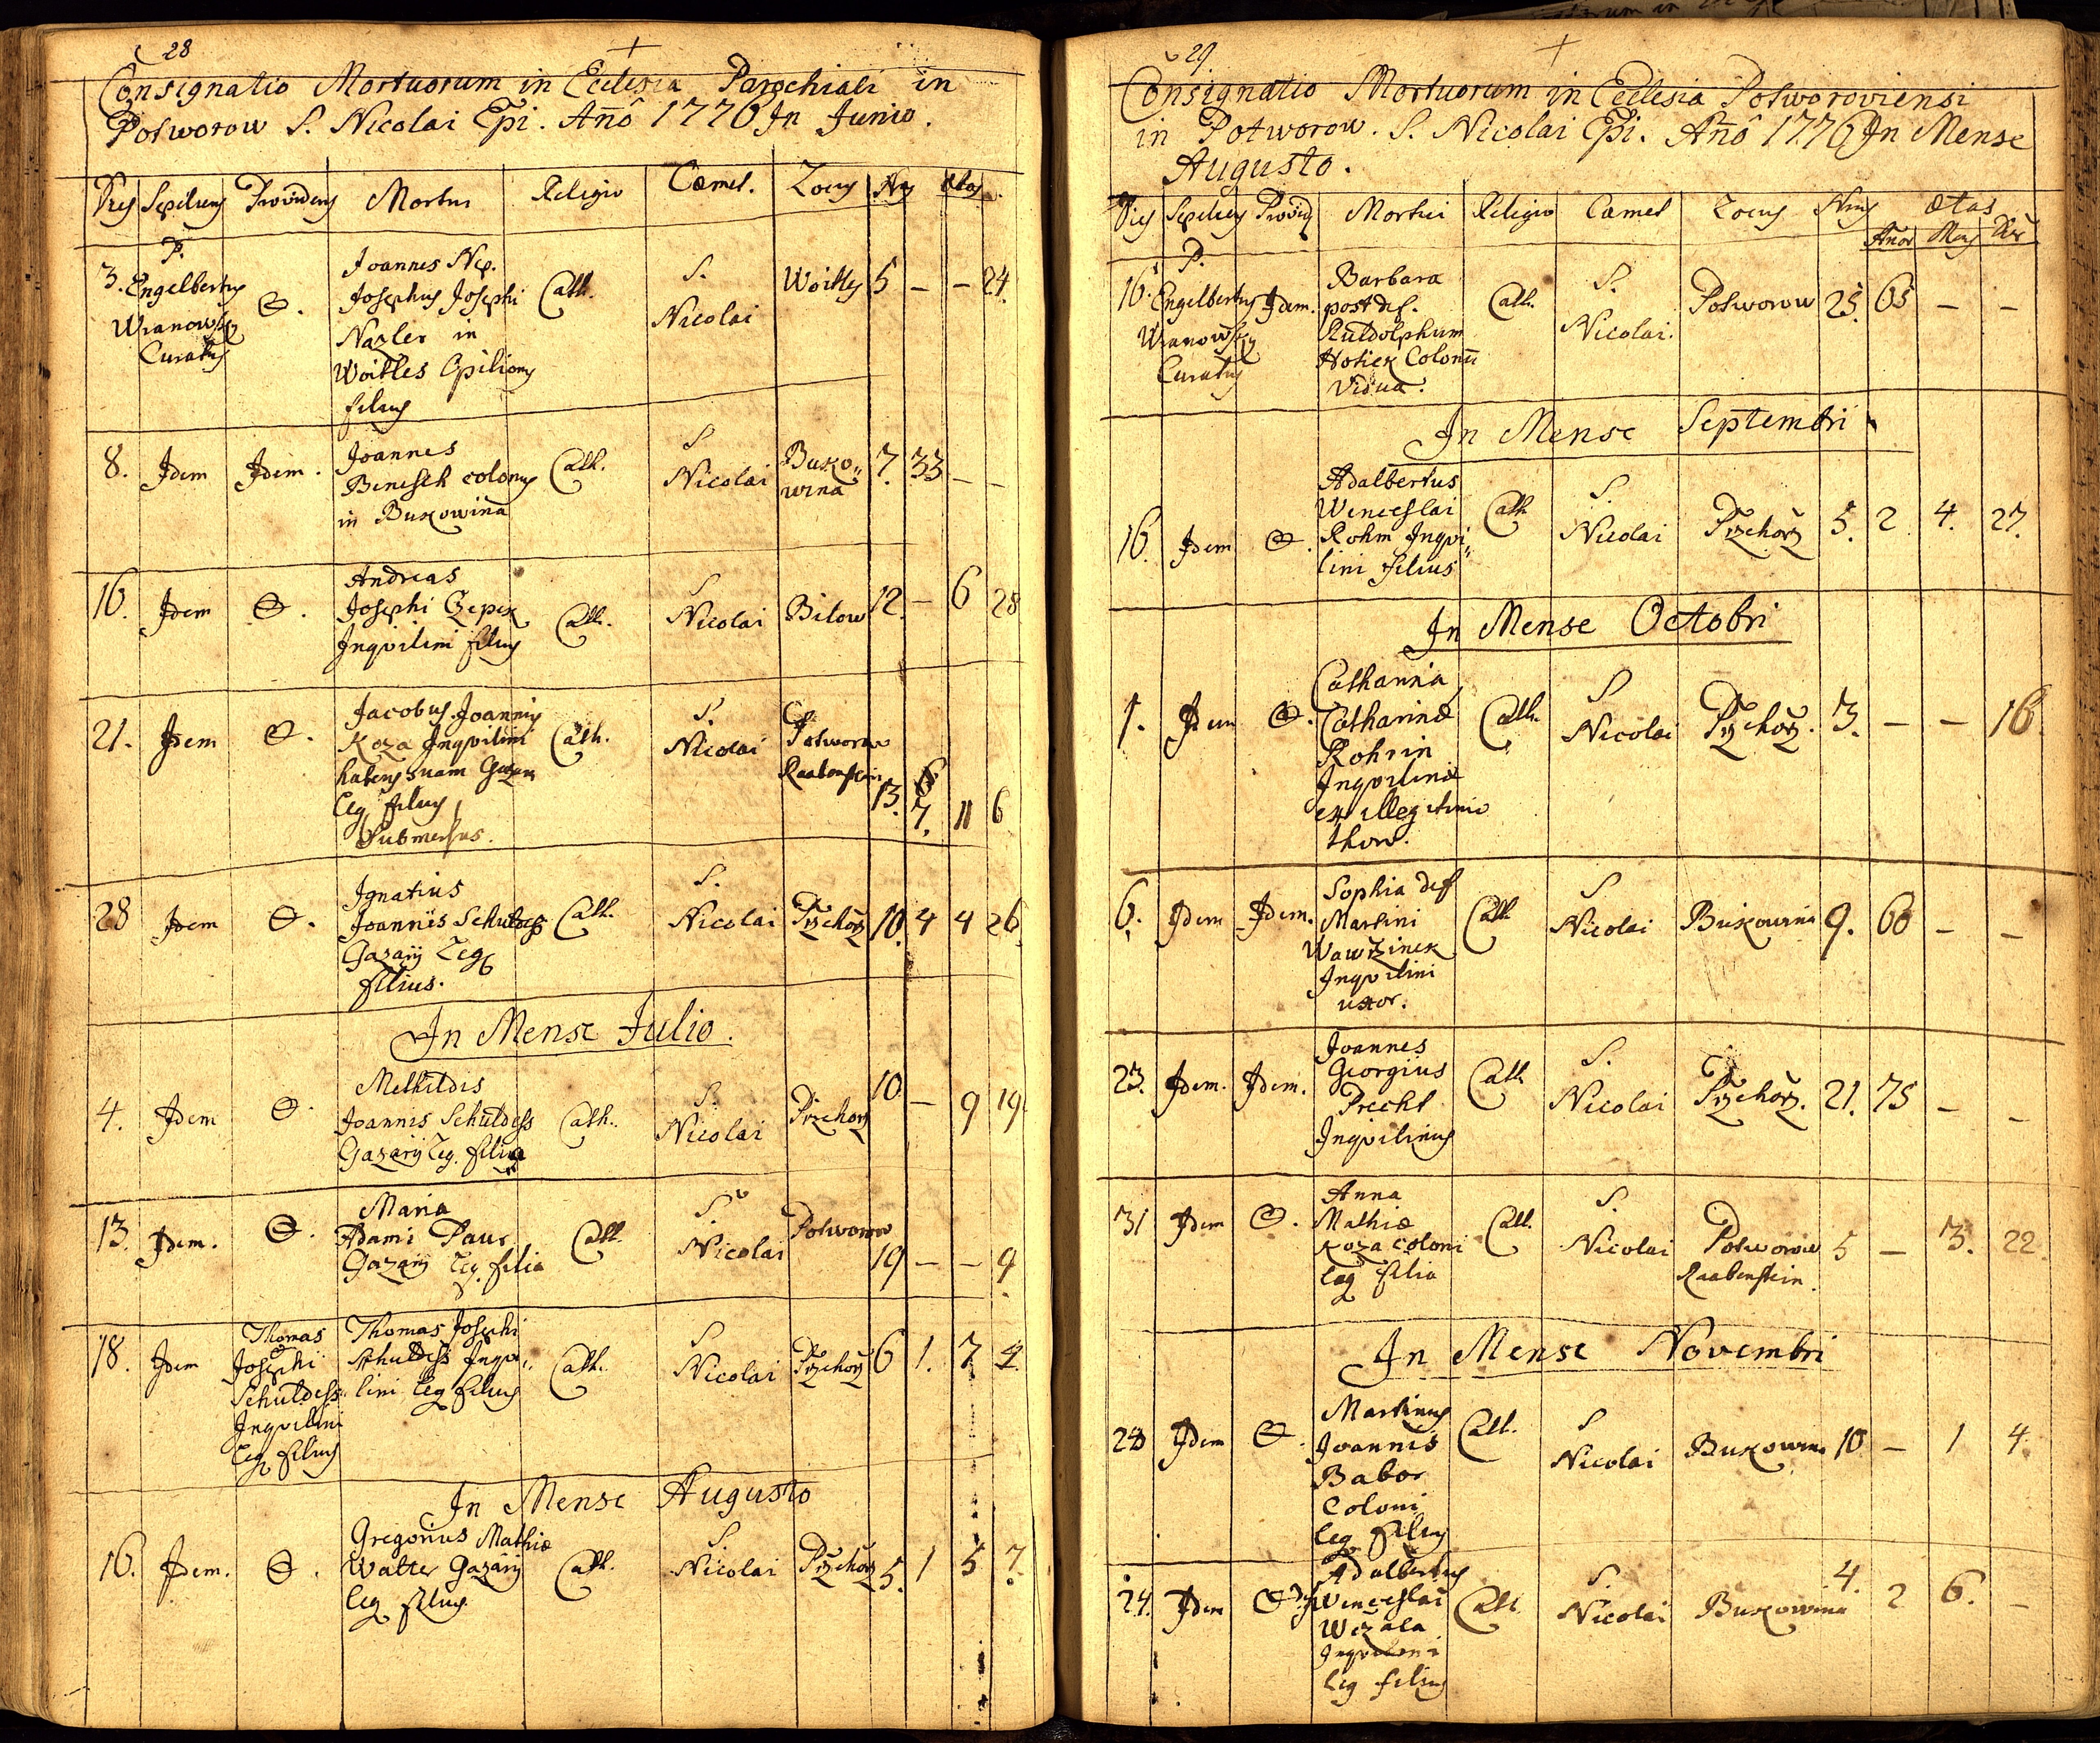 28
Consignatio Mortuorum in Ecclesia Parochiali in
Potworow S. Nicolai Epi. Añô 1776 In Junio.
Dies Sepeliens Providens Mortui Religio Cœmet. Locus Nrus ætas
3. P. Engelbertus Wranowsky Curatus
O.
Joannes Nep.
Josephus Josephi
Nazler in
Woitles Opilionis
filius
Cath.
S. Nicolai
Woitles 5 – – 24.
8. Idem Idem.
Joannes
Benesch colonus
in Bukowina
Cath.
S. Nicolai
Buko„
wina
7. 33 – –
16. Idem O.
Andreas
Josephi Czepek
Inqvilini filius
Cath.
S. Nicolai
Bilow 12. – 6 28
21. Idem O.
Jacobus Joannis
Koza Inqvilini
habens suam
Leg filius
Submersus.
Cath.
S. Nicolai
Potworow
Raabenstein
13. 7. 11 6
28 Idem O.
Ignatius
Joannis Schuldess
Gazarij Leg
filius.
Cath.
S. Nicolai
Przehorz 10. 4 4 26
In Mense Julio.
4. Idem O.
Methildis
Joannis Schuldess
Gazarij Leg. filia
Cath.
S. Nicolai
Przehorz 10 – 9 19.
13. Idem. O.
Maria
Adami Paur
Gazarij Leg. filia
Cath.
S. Nicolai
Potworow
19 – – 9
18. Idem
Thomas
Josephi
Schuldess
Inqvilini
Leg filius
Thomas Josephi
Schuldess Inqvi„
lini Leg filius
Cath.
S. Nicolai
Przehorz 6 1. 7 4.
In Mense Augusto
16. Idem. O.
Gregorius Mathiæ
Walter Gazarij
Leg filius
Cath.
S. Nicolai
Przehorz 5. 1 5 7.
29
Consignatio Mortuorum in Ecclesia Potworoviensi
in Potworow. S. Nicolai Epi. Añô 1776 In Mense
Augusto.
Dies Sepeliens Providens Mortui Religio Cœmet Locus Nrus ætas
Añor Mens Dier
16. P. Engelbertus Wranowsky Curatus
Idem.
Barbara
post def.
Rudolphum
Hotiek Colonū
Vidua.
Cath.
S. Nicolai.
Potworow 25. 65 – –
In Mense Septembri
16. Idem O.
Adalbertus
Wenceslai
Rohm Inqvi„
lini filius
Cath
S. Nicolai
Przehorz 5. 2 4. 27.
In Mense Octobri
1. Idem O.
Catharina
Catharinæ
Rohrin
Inqvilinæ
ex illegitimo
thoro.
Cath.
S Nicolai
Przehorz. 3. – – 16.
6. Idem Idem.
Sophia def
Martini
Wawrzinek
Inqvilini
uxor.
Cath.
S Nicolai
Bukowina 9. 60 – –
23. Idem. Idem.
Joannes
Georgius
Precht
Inqvilinus
Cath
S. Nicolai
Przehorz. 21. 75 – –
31 Idem O.
Anna
Mathiæ
Koza coloni
Leg filia
Cath.
S. Nicolai
Potworow
Raabenstein.
5 – 3. 22.
In Mense Novembri
Idem O.
Martinus
Joannis
Babor
Coloni
Leg filius
Cath.
S Nicolai
Bukowina 10 – 1 4
24. Idem
Adalbertus
Wenceslai
Wczala
Inqvilini
Leg filius
Cath
S. Nicolai
Bukowina 4. 2 6. –